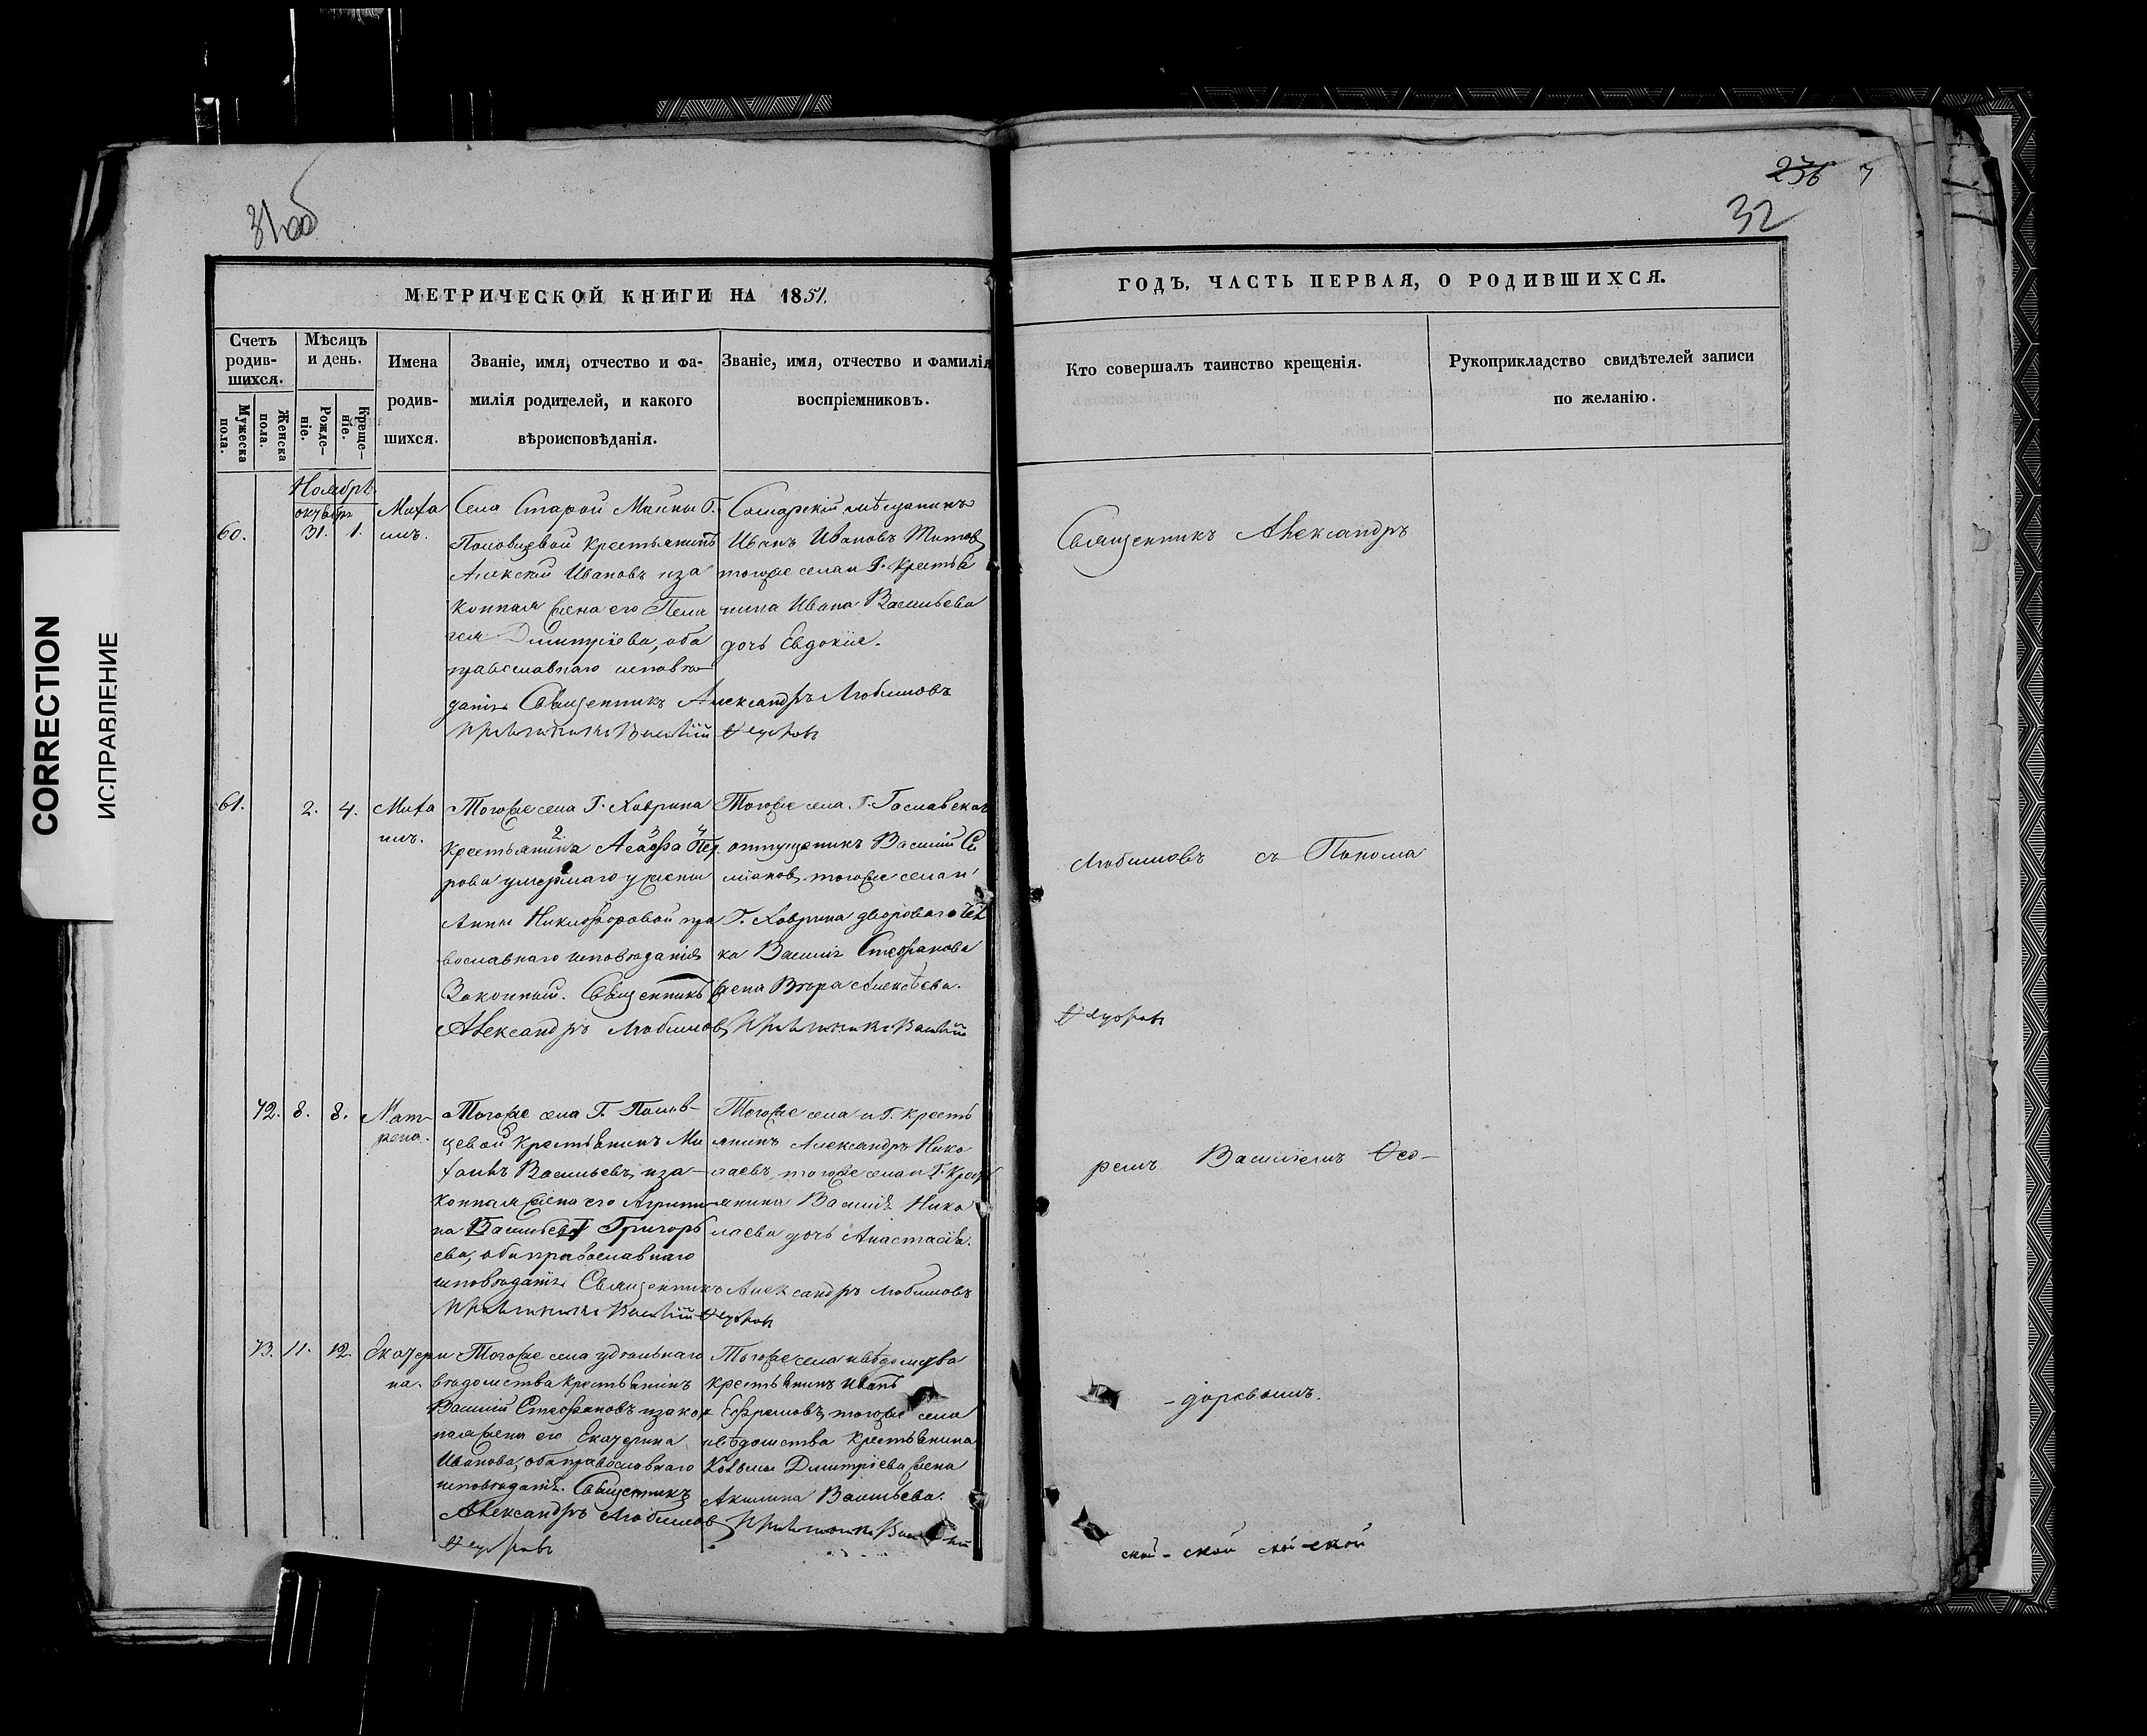 31об
236
7
32
CORRECTION
ИСПРАВЛЕНИЕ
МЕТРИЧЕСКОЙ КНИГИ НА 1851.
ГОДЪ, ЧАСТЬ ПЕРВАЯ, О РОДИВШИХСЯ.
Счетъ родив-шихся.
Мужеска пола.
Женска пола.
Мѣсяцъ и день.
Рожде-ніе.
Креще-ніе.
Имена родив-шихся.
Званіе, имя, отчество и фа-
милія родителей, и какого
вѣроисповѣданія.
Званіе, имя, отчество и фамилія
воспріемниковъ.
Кто совершалъ таинство крещенія.
Рукоприкладство свидѣтелей записи
по желанію.
Ноябрь
октября
60.
31. 1.
Миха
илъ.
Села Старой Майны Г.
Половцевой крестьянинъ
Алексѣй Ивановъ и за
конная жена его Пела
гея Дмитріева, оба
православнаго исповѣ-
данія Священникъ Александръ Любимовъ
Василій Ѳедоровъ
Самарскій мѣщанинъ
Иванъ Ивановъ Титов
тогоже села и Г. крестья
нина Ивана Васильева
дочь Евдокія.
61.
2. 4.
Миха
илъ.
Тогоже села Г. Ховрина
крестьянина
рова умершаго у жены
Анны Никифоровой пра
вославнаго исповѣданія
Законный. Священникъ
Александръ Любимовъ
Тогоже села Г.
отпущеникъ Василій
тогоже села и
Г. Ховрина двороваго
ка Василія Стефанова
жена Вѣра Алексѣева.
Василій
72. 8. 8.
Мат-
рена.
Тогоже села Г. Полов-
цевой крестьянинъ Ми
хаилъ Васильевъ и за-
конная жена его Агрипи
на Васильева Григорь
ева, оба православнаго
исповѣданія Священникъ Александръ Любимовъ
Василій Ѳедоровъ
Тогоже села и Г. кресть
янинъ Александръ Нико
лаевъ, тогоже села и Г. крест
янина Василія Нико
лаева дочь Анастасія.
73. 11. 12.
Екатери
на.
Тогоже села удѣльнаго
вѣдомства крестьянинъ
Василій Стефановъ и закон
ная жена его Екатерина
Иванова, оба православнаго
исповѣданія. Священникъ
Александръ Любимовъ
Ѳедоровъ
Тогоже села и вѣдомства
крестьянинъ Иванъ
Ефремовъ, тогоже села
и вѣдомства крестьянина
Козьмы Дмитріева жена
Акилина Васильева.
Василій
Священникъ Александръ
Любимовъ съ Понома
Ѳедоровъ
ремъ Василіемъ Ѳео-
-доровымъ.
ской - ской ской - ской